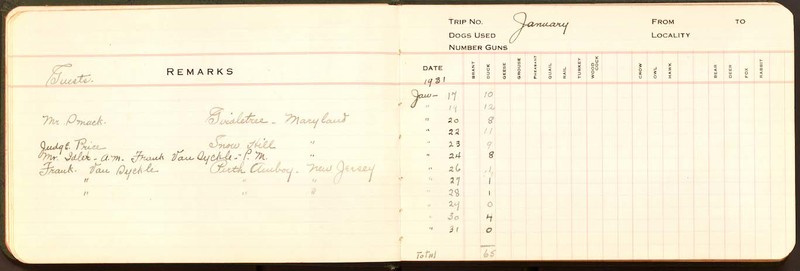 Guests.
REMARKS
Mr. Smack. Girdletree - Maryland
Judge Price Snow Hill "
Mr. Isler - A.M. Frank Van Dychle - P.M.
Frank Van Dychle Perth Amboy - New Jersey
" " "
" " "
TRIP NO. January FROM TO
DOGS USED LOCALITY
NUMBER GUNS
DATE BRANT DUCK GEESE GROUSE PHEASANT QUAIL RAIL TURKEY WOOD COCK CROW OWL HAWK BEAR DEER FOX RABBIT
1931
Jan - 17 10
" 19 12
" 20 8
" 22 11
" 23 9
" 24 8
" 26 1
" 27 1
" 28 1
" 29 0
" 30 4
" 31 0
Total 65